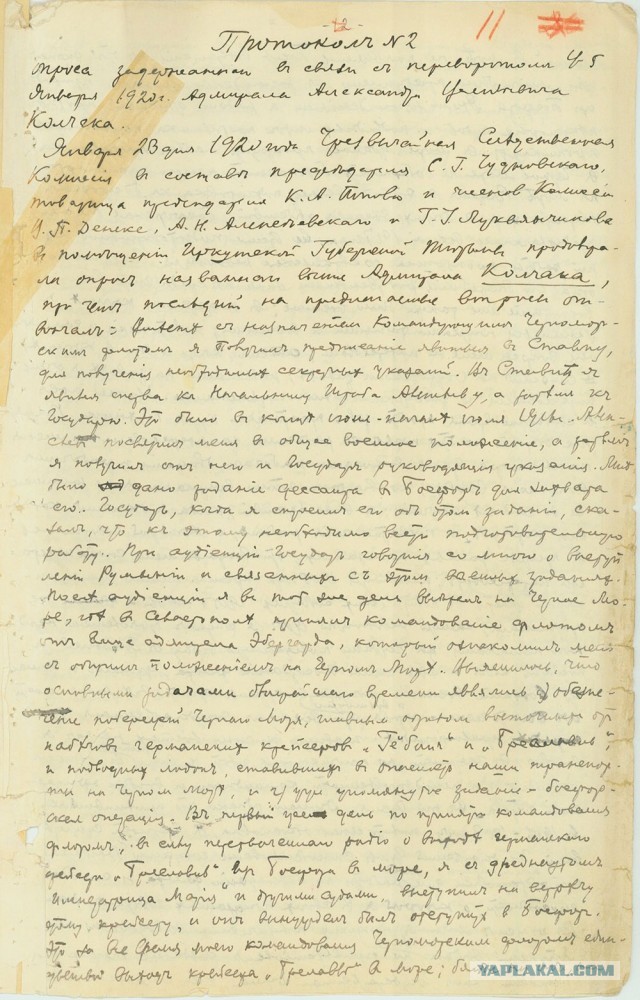 - 12 -
11
Протоколъ №2
опроса задержаннаго в связи съ переворотомъ 4-5
Января 1920 г. Адмирала Александра Васильевича
Колчака.
Января 23 дня 1920 года Чрезвычайная Следственная
Комиссія в составѣ предсѣдателя С. Г. Чудновскаго,
товарища предсѣдателя К. А. Попова и членовъ Комиссіи
В. П. Денике, А. Н. Алексѣевскаго и Г. Г. Лукьянчикова
в помѣщеніи Иркутской Губернской Тюрьмы продолжа-
ла опросъ названнаго выше Адмирала Колчака,
при чемъ послѣдній на предлагаемые вопросы от-
вечалъ: съ назначеніемъ Командующимъ Черномор-
скимъ флотомъ я получилъ предписаніе явиться в Ставку,
для полученія необходимыхъ секретныхъ указаній. Въ Ставкѣ я
явился сперва къ Начальнику Штаба Алексѣеву, а затѣмъ къ
Государю. Это было в концѣ іюня - началѣ іюля Алек-
сѣевъ посвятилъ меня в общее военное положеніе, а затѣмъ
я получилъ отъ него и Государя руководящія указанія. Мнѣ
было дано заданіе десанта в Босфоръ для захвата
его. Государь, когда я спросилъ его об этомъ заданіи, ска-
залъ, что къ этому необходимо вести подготовительную
работу. При аудіенціи Государь говорилъ со мною о выступ-
леніи Румыніи и связанныхъ съ этимъ военныхъ заданіяхъ.
Послѣ аудіенціи я в тотъ же день выѣхалъ на Черное Мо-
ре, гдѣ в Севастополѣ принялъ командованіе флотомъ
отъ Вице адмирала Эбергарда, который ознакомилъ меня
съ общимъ положеніемъ на Черномъ Морѣ. Выяснилось, что
основными задачами ближайшаго времени явились обезпе-
ченіе побережья Чернаго Моря, главнымъ образомъ восточнаго от
набѣговъ германскихъ крейсеровъ „Гебенъ" и „Бреславль",
и подводныхъ лодокъ, ставившихъ в опасность наши транспор-
ты на Черномъ Морѣ, и уже упомянутое заданіе - босфор-
ская операція. Въ первый день по принятіи командованія
флотомъ, в виду перехваченнаго радіо о выходѣ германскаго
крейсера „Бреславль" изъ Босфора в море, я съ дредноутомъ
„Императрица Марія" и другими судами, выступилъ на встрѣчу
этому крейсеру, и онъ вынужденъ былъ отступить в Босфоръ.
Это за все время моего командованія Черноморскимъ флотомъ един-
ственный выходъ крейсера „Бреславль" в море;
YAPLAKAL.COM